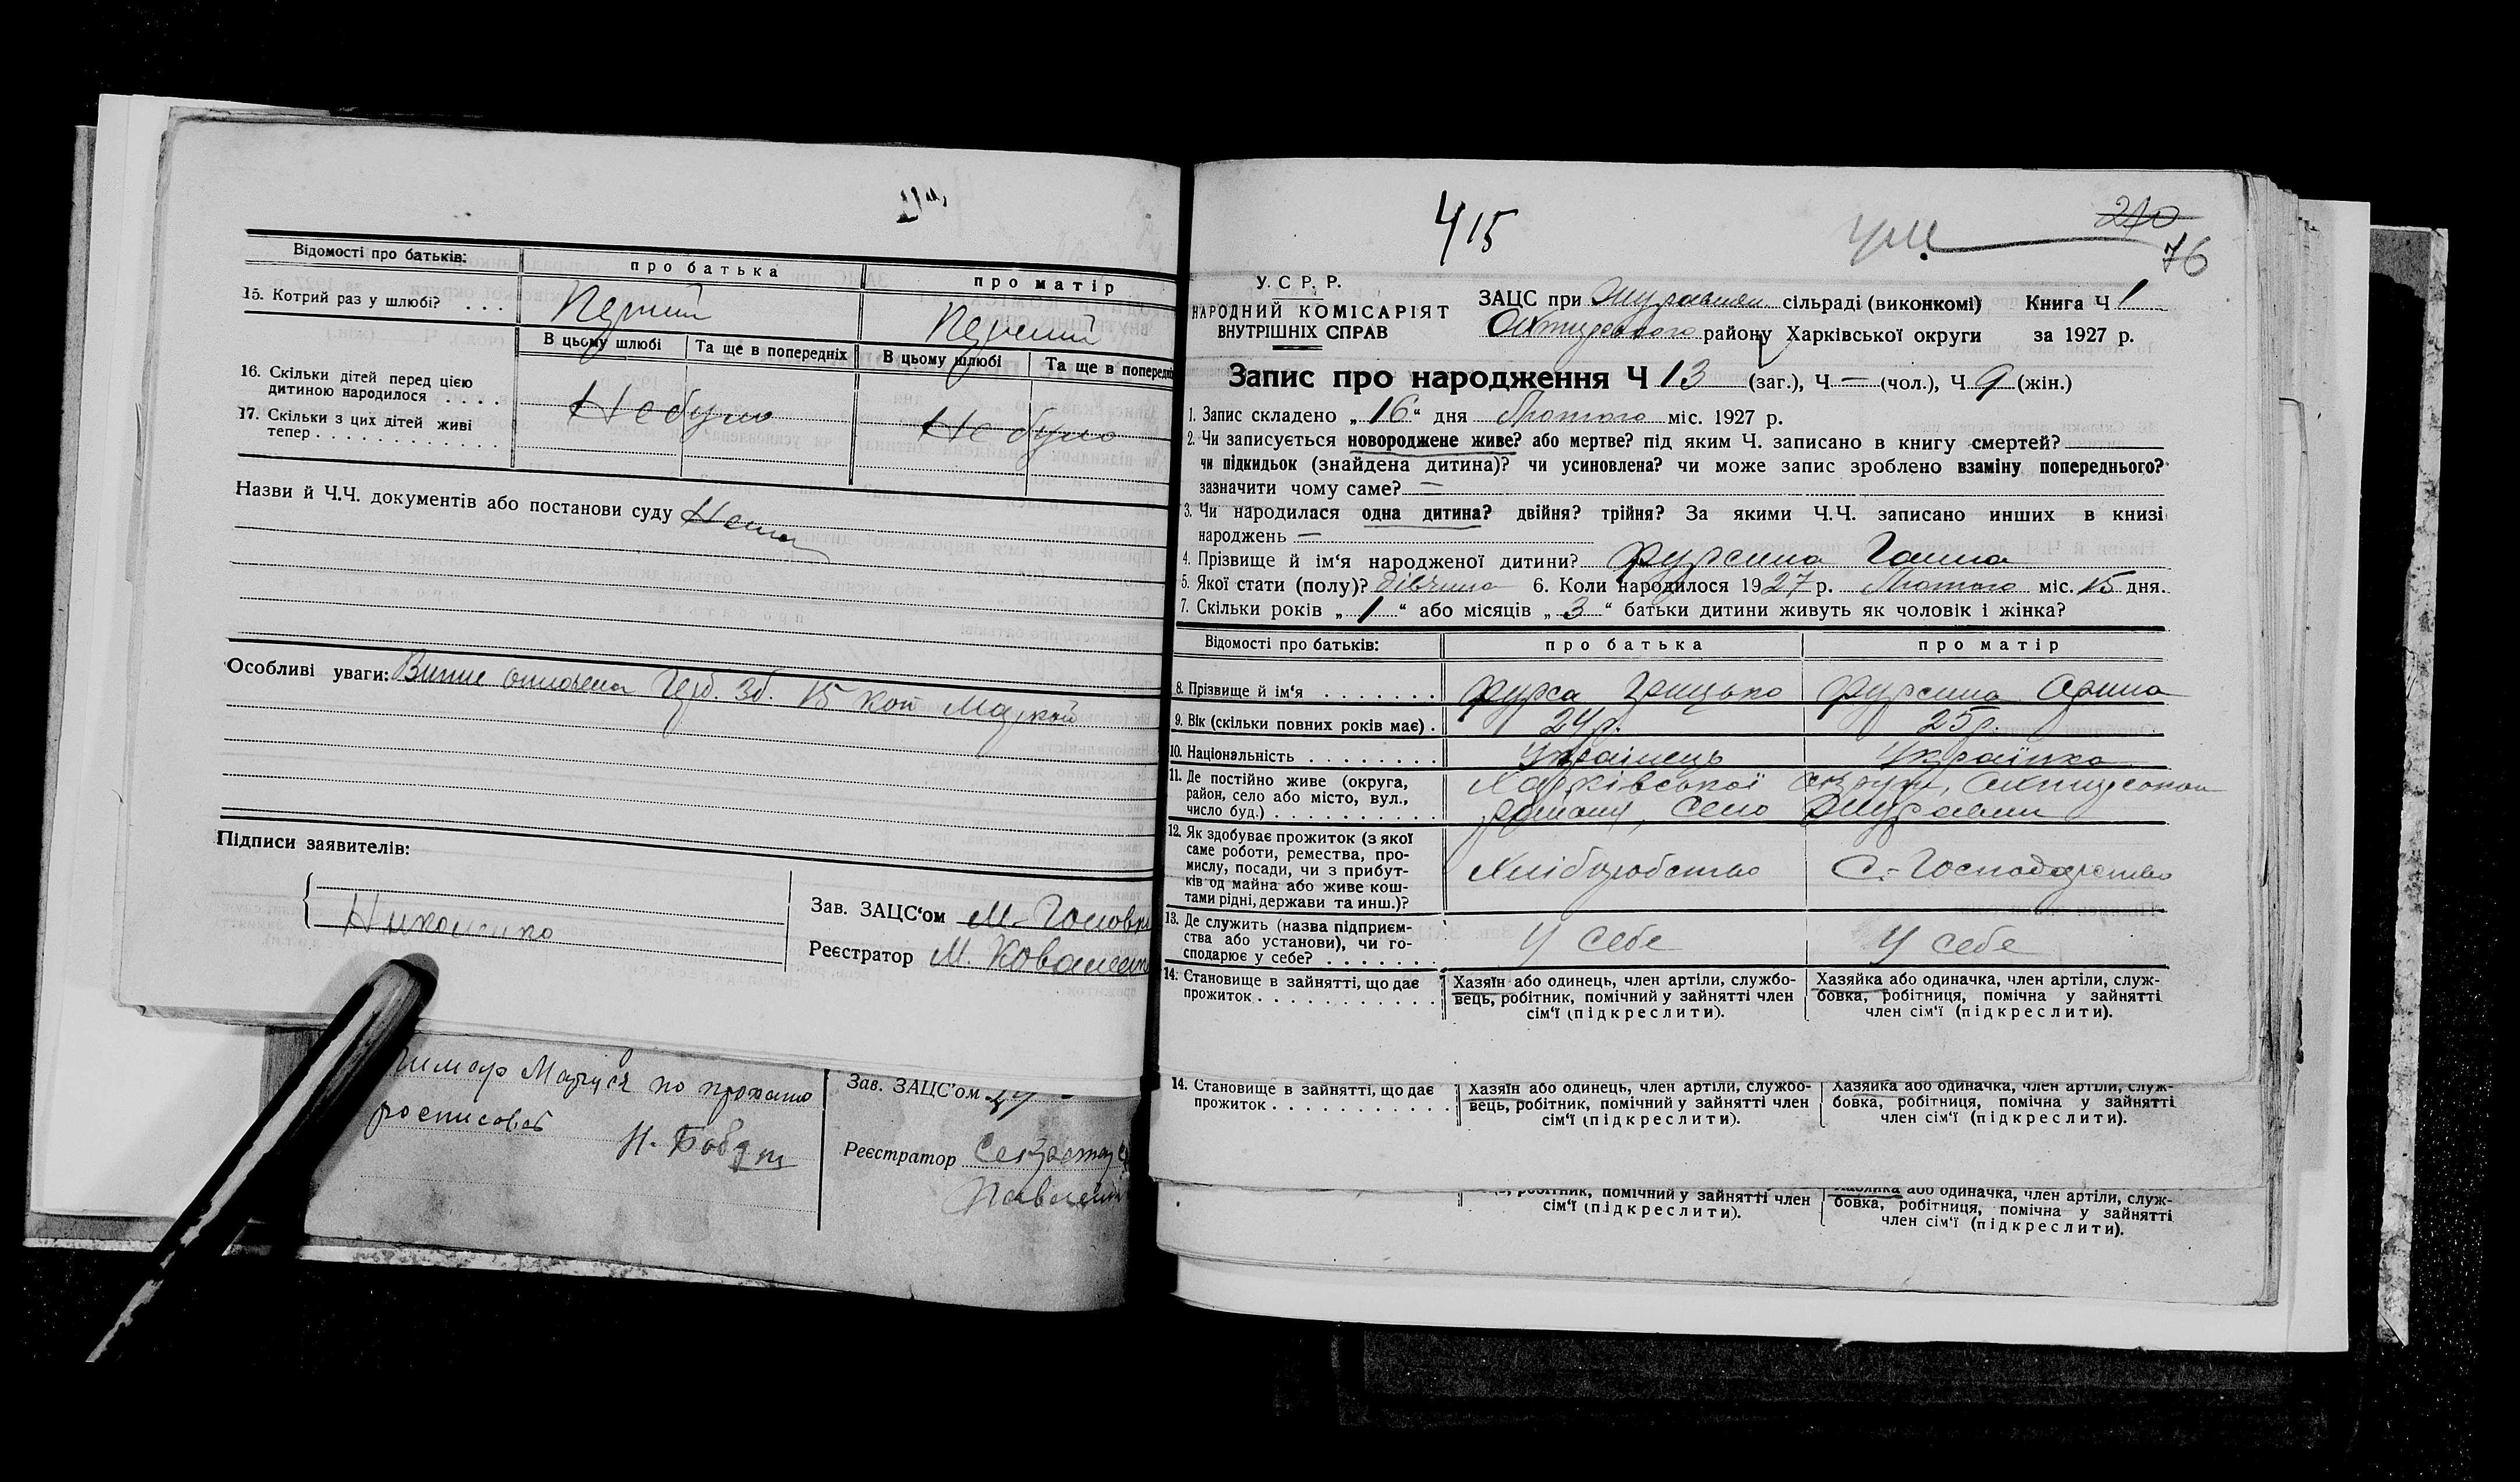 Відомості про батьків: про батька про матір
15. Котрий раз у шлюбі? . . . Перший Перший
В цьому шлюбі Та ще в попередніх В цьому шлюбі Та ще в попередніх
16. Скільки дітей перед цією
дитиною народилося . . . . Не було Не було
17. Скільки з цих дітей живі
тепер . . . . . . . . . . . .
Назви й Ч.Ч. документів або постанови суду Нема
Особливі уваги: Випис оплочена Герб. Зб. 15 коп Маркой
Підписи заявителів:
Зав. ЗАЦС'ом М.
Реєстратор М.
Маруся по
Зав. ЗАЦС'ом
росписався
Реєстратор
415
210
76
У. С. Р. Р.
НАРОДНИЙ КОМІСАРІЯТ
ВНУТРІШНІХ СПРАВ
ЗАЦС при сільраді (виконкомі) Книга Ч 1
району Харківської округи за 1927 р.
Запис про народження Ч 13 (заг.), Ч — (чол.), Ч 9 (жін.)
1. Запис складено „ 16 “ дня Лютого міс. 1927 р.
2. Чи записується новороджене живе? або мертве? під яким Ч. записано в книгу смертей?
чи підкидьок (знайдена дитина)? чи усиновлена? чи може запис зроблено взаміну попереднього?
зазначити чому саме? —
3. Чи народилася одна дитина? двійня? трійня? За якими Ч.Ч. записано инших в книзі
народжень —
4. Прізвище й ім'я народженої дитини? Фурсина Ганна
5. Якої стати (полу)? дівчина 6. Коли народилося 1927 р. Лютого міс. 15 дня.
7. Скільки років „ 1 “ або місяців „ 3 “ батьки дитини живуть як чоловік і жінка?
Відомості про батьків: про батька про матір
8. Прізвище й ім'я . . . . . . . Фурса Грицько Фурсина Орина
9. Вік (скільки повних років має) . 24 р. 25 р.
10. Національність . . . . . . . . Українець Українка
11. Де постійно живе (округа,
район, село або місто, вул.,
число буд.) . . . . . . . . . . .
Харківської округи,
село
12. Як здобуває прожиток (з якої
саме роботи, ремества, про-
мислу, посади, чи з прибут-
ків од майна або живе кош-
тами рідні, держави та инш.)?
Хліборобство С.-Господарство
13. Де служить (назва підприєм-
ства або установи), чи го-
сподарює у себе? . . . . . . .
У себе У себе
14. Становище в зайнятті, що дає
прожиток . . . . . . . . . . . .
Хазяїн або одинець, член артіли, службо-
вець, робітник, помічний у зайнятті член
сім'ї (підкреслити).
Хазяйка або одиначка, член артіли, служ-
бовка, робітниця, помічна у зайнятті
член сім'ї (підкреслити).
14. Становище в зайнятті, що дає
прожиток . . . . . . . . . . . .
Хазяїн або одинець, член артіли, службо-
вець, робітник, помічний у зайнятті член
сім'ї (підкреслити).
Хазяйка або одиначка, член артіли, служ-
бовка, робітниця, помічна у зайнятті
член сім'ї (підкреслити).
робітник, помічний у зайнятті член
сім'ї (підкреслити).
Хазяйка або одиначка, член артіли, служ-
бовка, робітниця, помічна у зайнятті
член сім'ї (підкреслити).